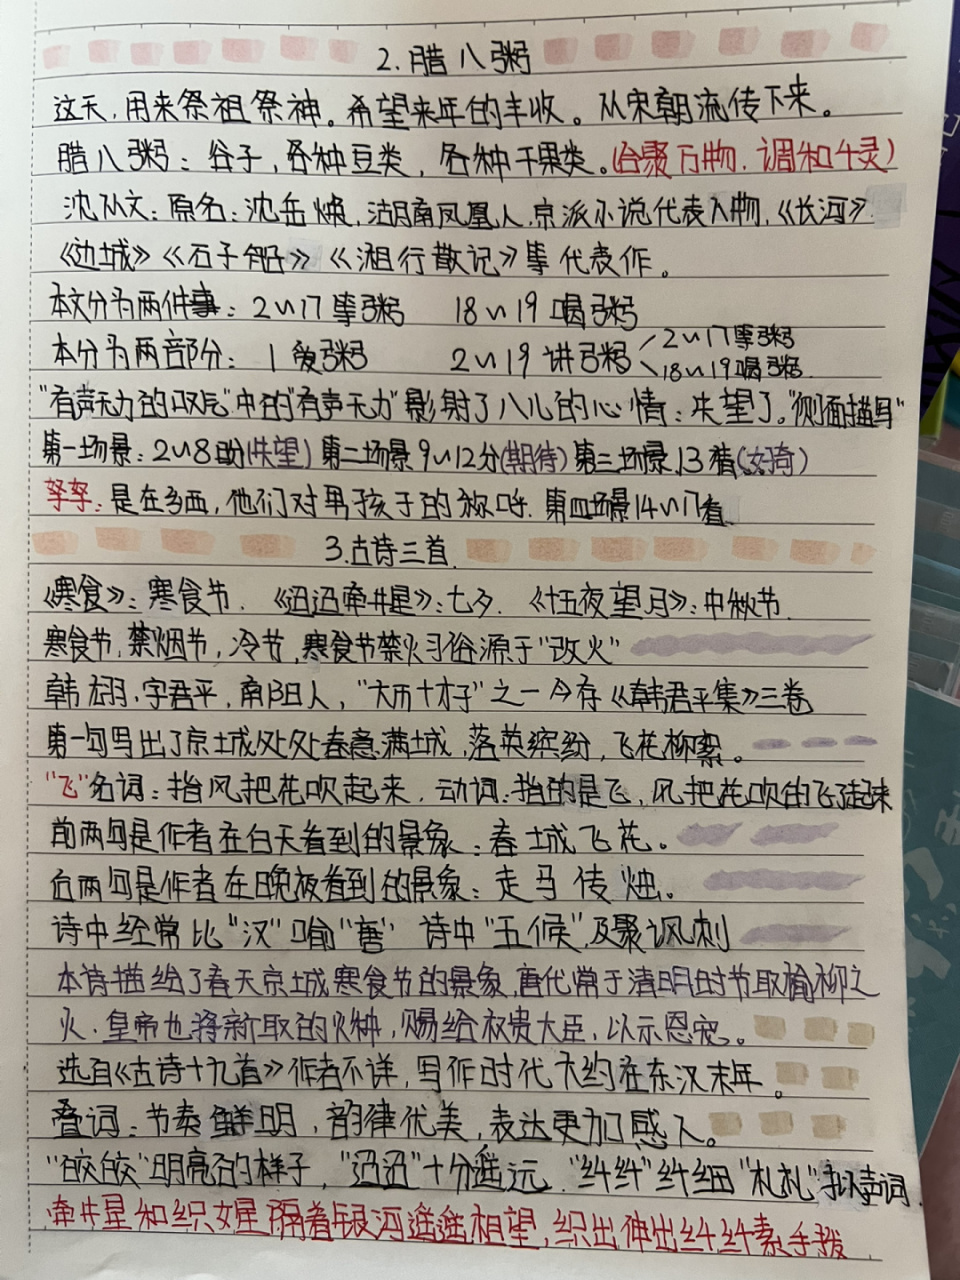 2.腊八粥
这天,用来祭祖祭神。希望来年的丰收。从宋朝流传下来。
腊八粥:谷子,各种豆类,各种干果类。(合聚万物.调和千灵)
沈从文:原名:沈岳焕,湖南凤凰人.京派小说代表人物,《长河》.
《边城》《石子船》《湘行散记》等代表作。
本文分为两件事:2~17等粥 18~19喝粥
本分为两部分:1爱粥 2~19讲粥 2~17等粥
18~19喝粥.
"有声无力的叹气"中的"有声无力"影射了八儿的心情:失望了."侧面描写"
第一场景:2~8盼(失望)第二场景9~12分(期待)第三场景13猜(好奇)
孥孥:是在乡西,他们对男孩子的称呼.第四场景14~17看
3.古诗三首.
《寒食》:寒食节.《迢迢牵牛星》:七夕.《十五夜望月》:中秋节.
寒食节,禁烟节,冷节,寒食节禁火习俗源于"改火"
韩翃.字君平,南阳人,"大历十才子"之一今存《韩君平集》三卷
第一句写出了京城处处春意满城,落英缤纷,飞花柳絮。
"飞"名词:指风把花吹起来.动词:指的是飞,风把花吹的飞了起来
前两句是作者在白天看到的景象:春城飞花。
后两句是作者在晚夜看到的景象:走马传烛。
诗中经常比"汉"喻"唐" 诗中"五候",及聚讽刺
本诗描绘了春天京城寒食节的景象,唐代常于清明时节取榆柳之
火.皇帝也将新取的火种,赐给权贵大臣,以示恩宠。
选自《古诗十九首》作者不详,写作时代大约在东汉末年。
叠词:节奏鲜明,韵律优美,表达更加感人。
"皎皎"明亮的样子,"迢迢"十分遥远."纤纤"纤细"札札"拟声词.
牵牛星和织女星隔着银河遥遥相望,织出伸出纤纤素手拨